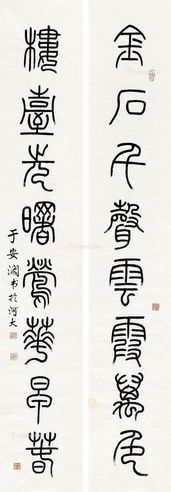 金石千聲雲霞萬色
樓臺先曙鶯華早春
于安瀾書於河大